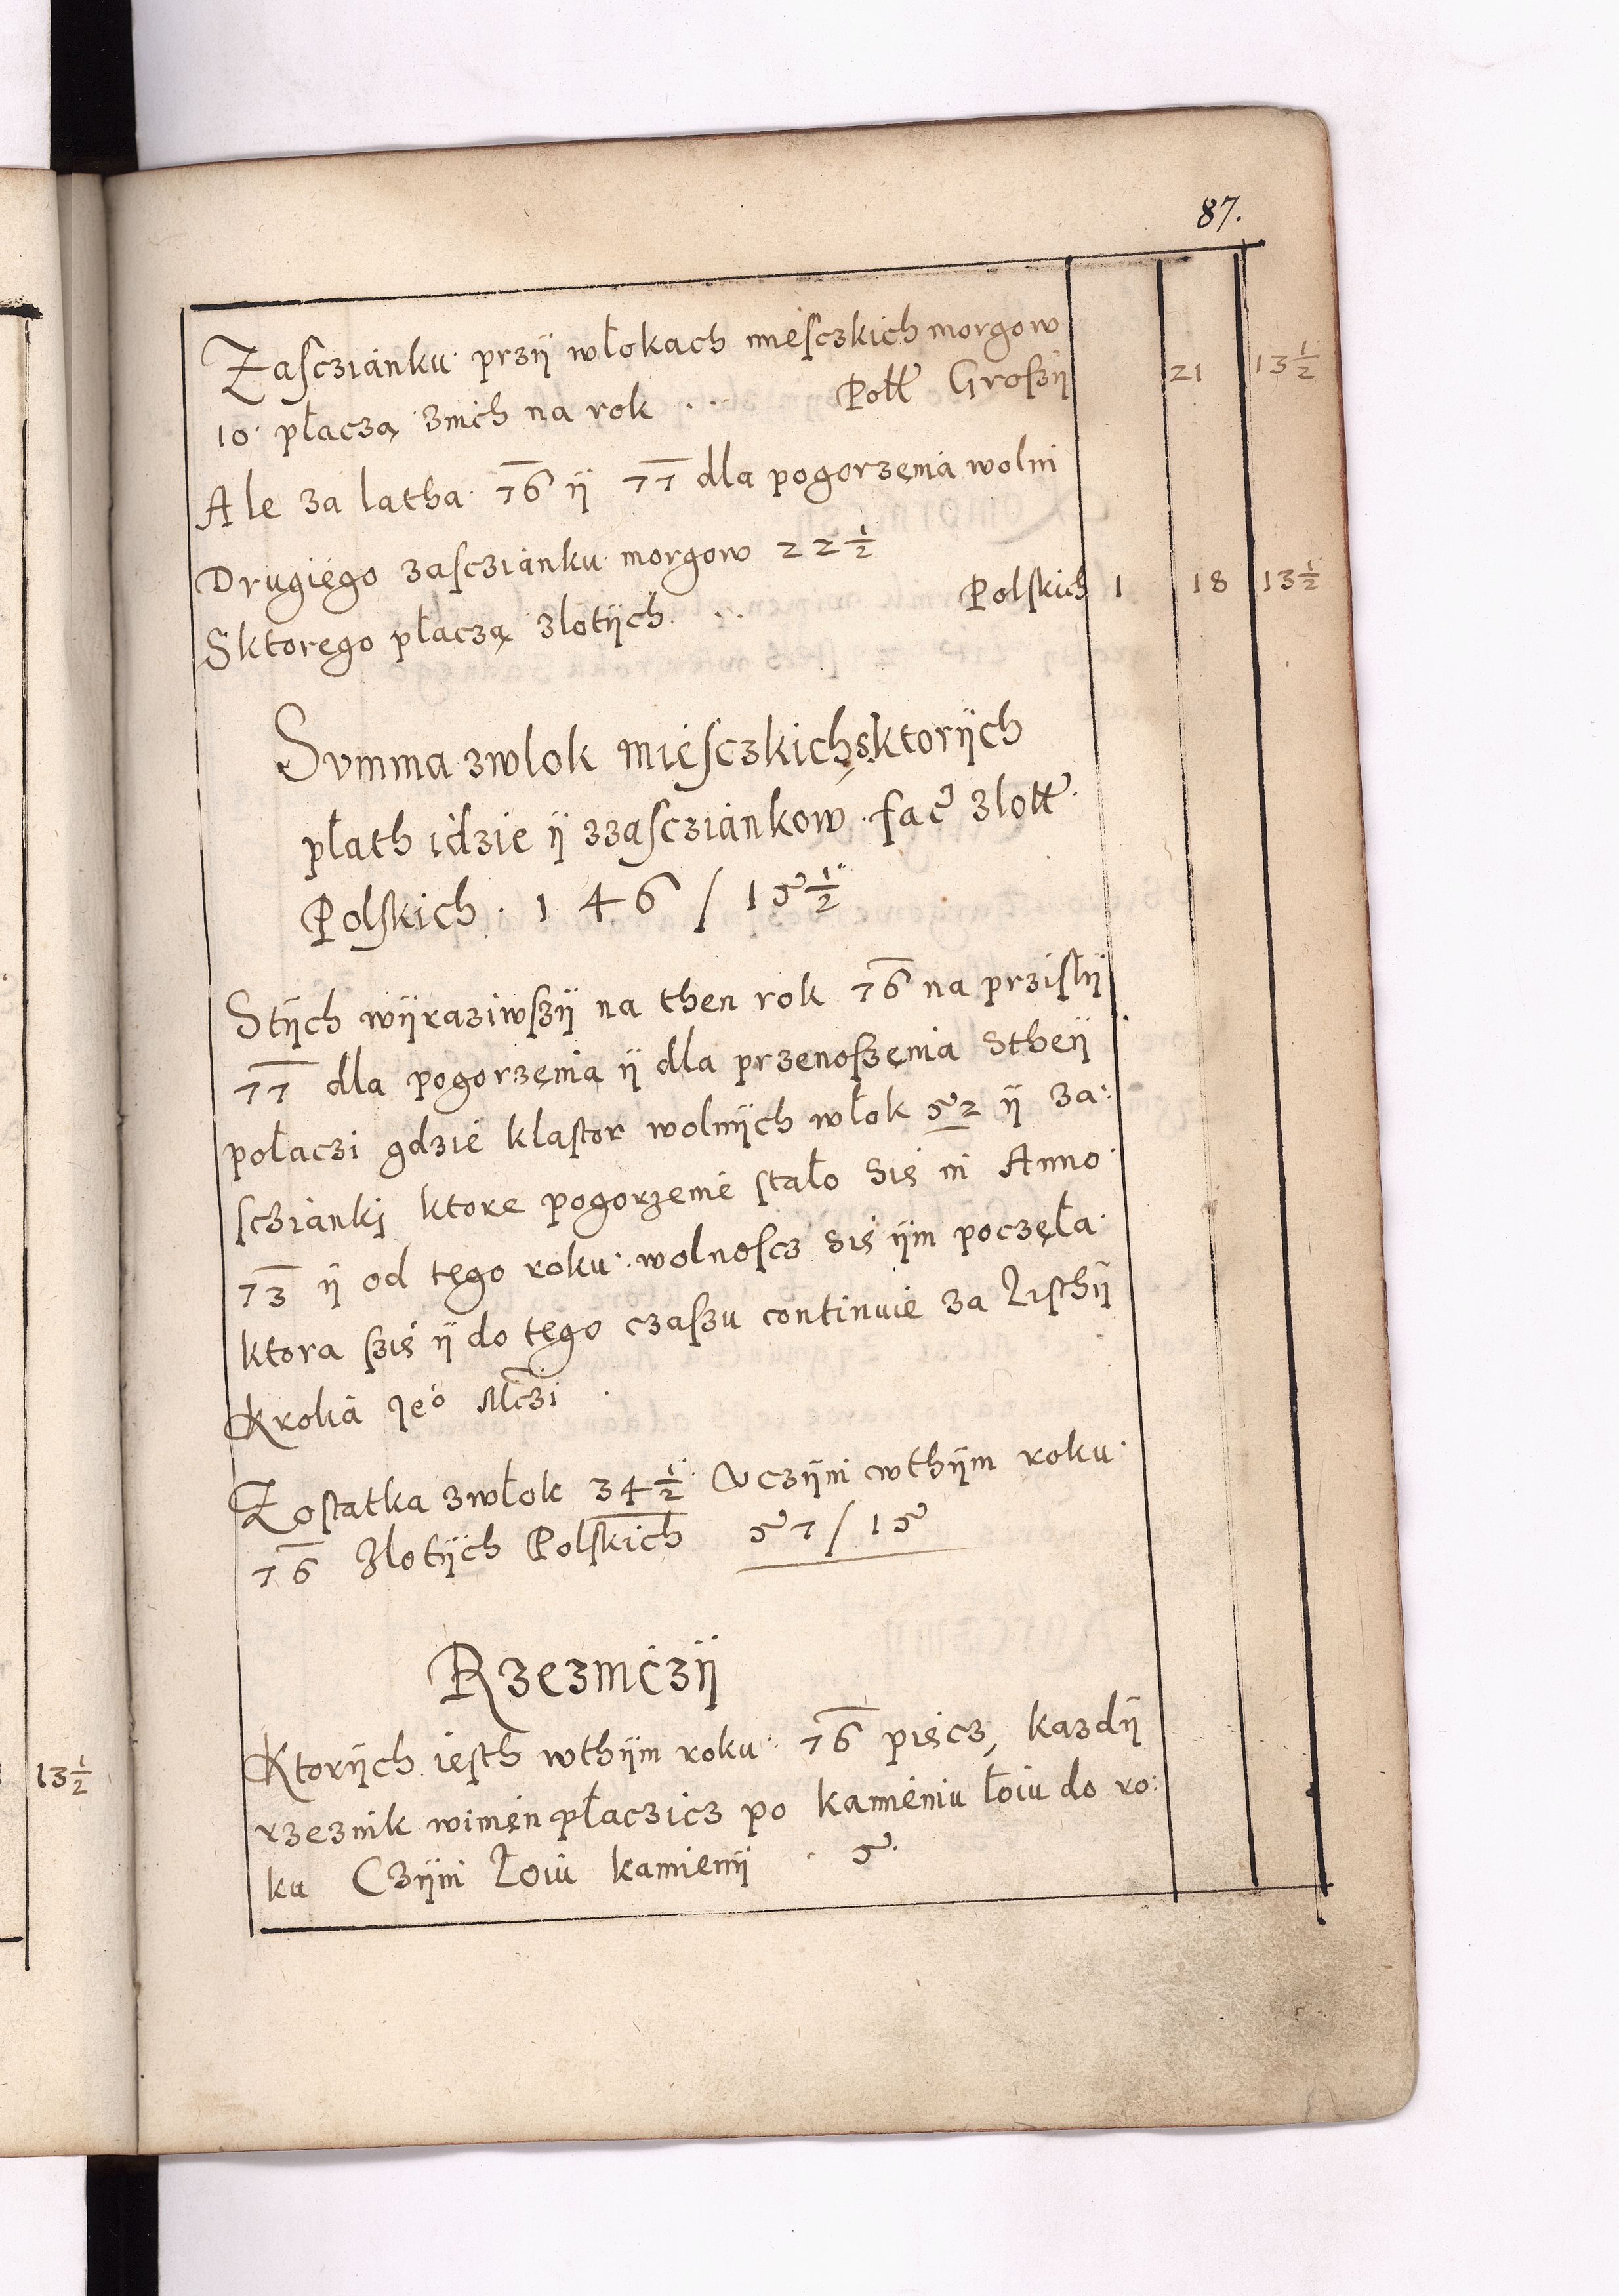 87.
Zasczianku przÿ włokach miesczkich morgow
10 płaczą znich na rok . . . Poll Groszÿ 21 13½
Ale za latha 76 ÿ 77 dla pogorzęnia wolni
Drugięgo zasczianku morgow 22½
Sktorego płaczą zlotÿch . . . Polskich 1 18 13½
Svmma zwlok Miesczkich sktorÿch
płath idzie ÿ zzascziankow fac zlott
Polskich 146 / 15½
Stÿch wÿraziwszÿ na then rok 76 na prziszłÿ
77 dla pogorzęnia ÿ dla przenoszęnia Stheÿ
połaczi gdzie klastor wolnÿch włok 52 ÿ za:
sczianki ktore pogorzenie stało Sis in Anno
73 ÿ od tęgo roku wolnoscz Sis ÿm poczęła
ktora szis ÿ do tęgo czaszu continuie za Listhÿ
Krola Jeo Mczi
Zostatka zwłok 34½ Vczÿni wthÿm roku
76 Zlotÿch Polskich 57 / 15
Rzezniczÿ
Ktorÿch iesth wthÿm roku 76 piscz, kazdÿ
rzeznik winięn płaczicz po kamieniu łoiu do ro:
ku Czÿni Łoiu kamienÿ . 5.
13½